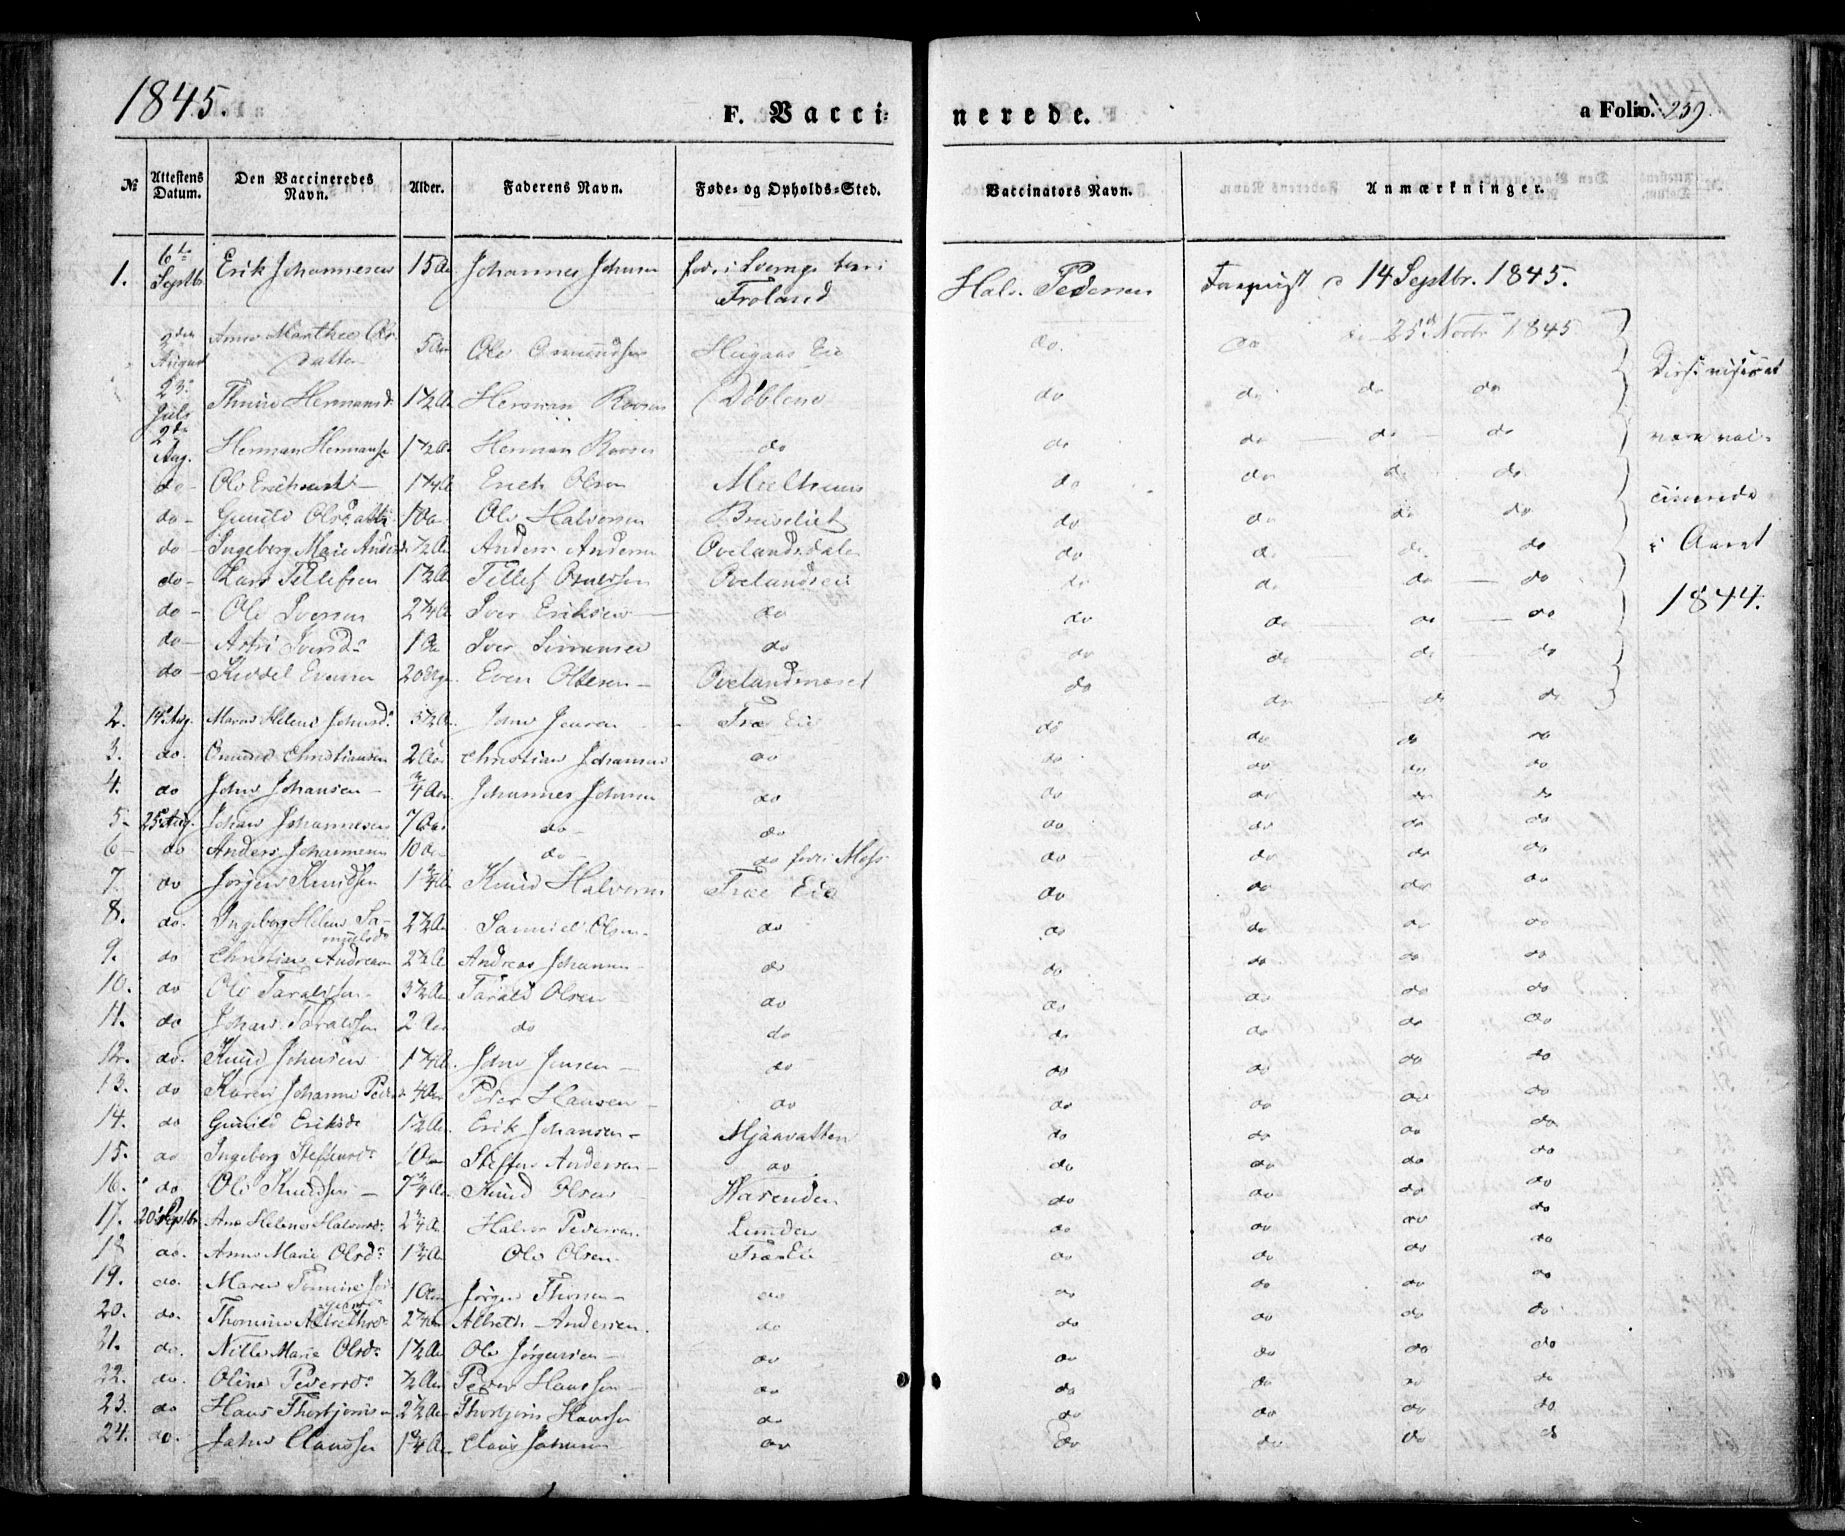 1845.
F. Vaccinerede.
a Folio. 239.
№ Attestens Datum. Den Vaccineredes Navn. Alder. Faderens Navn. Føde- og Opholds-Sted. Vaccinators Navn. Anmærkninger.
1. 6te Septbr Erik Johannesen 15 Aar Johannes Johnsen Froland Halv. Pedersen 14 Septbr. 1845.
August Anne Marthea Ols datter 5 Aar Ole Osmundsen Eie do. do 25de Novbr 1845
23de Juli Hermansd. 1½ A Herman do do do do
2den Aug. Herman Hermans 1½ A Herman do do do do do
do Ole 1¼ A Erich Olsen Mielhuus do do do do
do Gunild Olsdatter 10 Aar Ole Halvorsen do do do do
do Ingeborg Marie Andersd ½ Aar Anders Andersen Ovelandsdalen do do do do
do Lars Tellefsen 1½ A Tellef Ovelandseie do do do do
do Ole Iversen 2¼ A Iver Eriksen do do do do do
do Astri Iversd. 1 Aar Iver do do do do do
do Kiddel Evensen 20 Uger Even Olsen Ovelandmoset do do do do
vare vaccinerede i Aaret 1844.
2. 19de Aug. Maren Helene Johnsd. 3½ A John Jensen Træ Eie do do do do
3. do. Osmund Christiansen 2 Aar Christian Johansen do do do do do
4. do John Johansen ¾ Aar Johannes Johnsen do do do do do
5. 25de Aug. Johan Johannesen 7 Aar do do do do do do
6 do Anders Johannesen 10 Ar do do født i Moss do do do do
7. do Jørgen Knudsen 1¾ A Knud Halvorsen Træ Eie do do do do
8. do. Ingeborg Helene Samuelsdr 2½ Aar Samuel Olsen do do do do do
9. do Christian Andreasen 2½ A Andreas Johansen do do do do do
10. do Ole Taraldsen 3½ Aar Tarald Olsen do do do do do
11. do Johan Taraldsen 2 Aar do do do do do do
12. do. Knud Johnsen 1¼ A. John Jensen do do do do do
13. do Karen Johanne Peders 4 Aar Peder Hansen do do do do do
14. do Gunild Eriksdr 1½ A. Erik Johansen Mjaavatten do do do do
15. do Ingeborg Steffensdr 10 Aar Steffen Andersen do do do do do
16. do Ole Knudsen 7¾ Aar Knud Olsen do do do do
17. 20de Septbr Ane Helene Halvorsd. 2¾ A Halvor Pedersen Lunden do do do do
18 do. Anne Marie Olsdr 1¾ A Ole Olsen Træ Eie do do do do
19. do. Maren Tomine Jørgensdr 10 Aar Jørgen do do do do do
20. do. Thomine Albrethsdr 2¼ Aar Albreth Andersen do do do do do
21. do. Nille Marie Olsdr 1½ A Ole Jørgensen do do do do do
22. do. Oline Pedersdr ½ Aar Peder Hanssen do do do do do
23. do Hans Thorbjørnsen 2½ Aar Thorbjørn Hanssen do do do do do
24. do. John Claussen 1¾ A Claus Johnsen do do do do do